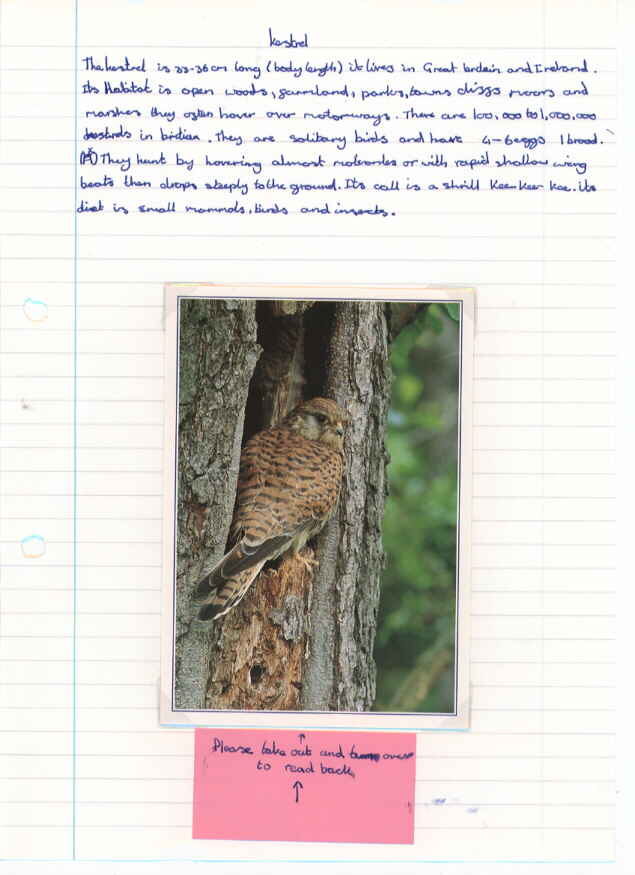 kestrel
The kestrel is 33-36cm long (body length) it lives in Great britain and Ireland.
Its Habitat is open woods, farmland, parks, towns cliffs moors and
marshes they often hover over motorways. There are 100,000 to 1,000,000
kestrels in britian. They are solitary birds and have 4-6 eggs 1 brood.
They hunt by hovering almost motionles or with rapid shallow wing
beats then drops steeply to the ground. Its call is a shrill Kee-kee-kee. its
diet is small mammals, birds and insects.
Please take out and turn over
to read back